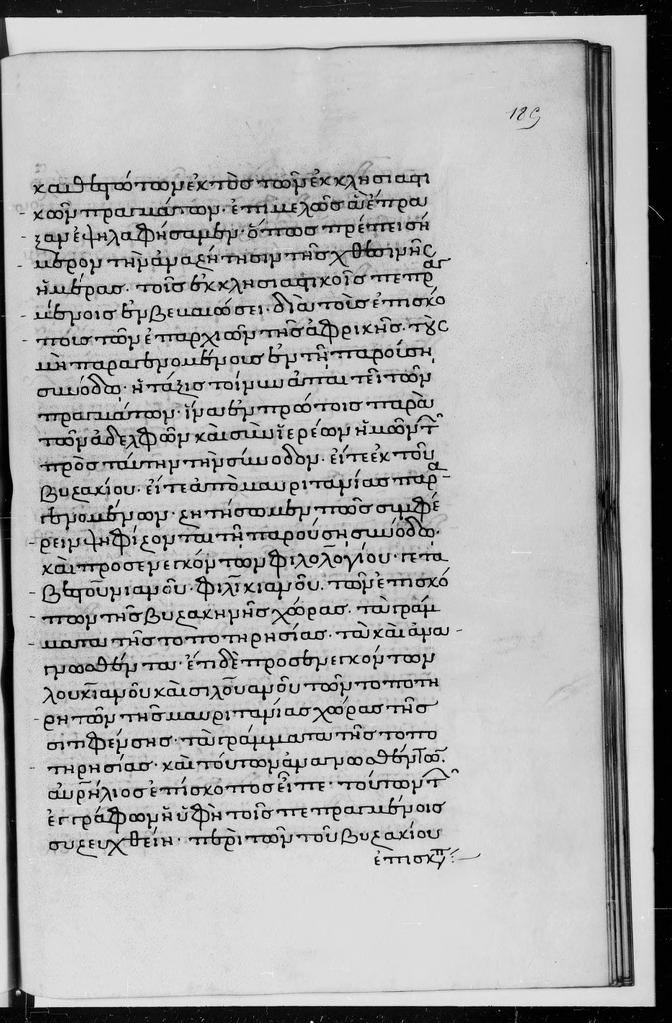 189
καὶ θεατῶν τῶν ἐκτὸς τῶν ἐκκλησιαστι
κῶν πραγμάτων. ἐπιμελῶς ἃ ἐπρά
ξαμεν ἐψηλαφήσαμεν. ὅπως πρέπει σή
μερον τὴν ἀναζήτησιν τῆς χθεσινῆς
ἡμέρας. τοῖς ἐκκλησιαστικοῖς πεπρα
μένοις ἐν βεβαιώσει. διὰ τοῖς ἐπισκό
ποις τῶν ἐπαρχιῶν τῆς ἀφρικῆς. τοὺς
μὴ παραγενομένοις ἐν τῇ παρούσῃ
συνόδῳ. ἡ τάξις τοίνυν ἀπαιτεῖ τῶν
πραγμάτων. ἵνα ἐν πρώτοις παρὰ
τῶν ἀδελφῶν καὶ συνιερέων ἡμῶν τῶν
πρὸς ταύτην τὴν σύνοδον. εἴτε ἐκ τοῦ
βυζακίου. εἴτε ἀπὸ μαυριτανίας παρα
γενομένων. ζητήσωμεν πῶς συμφέ
ρειν ψηφίζονται τῇ παρούσῃ συνόδῳ.
καὶ προσενεγκόντων φιλολογίου. γετα
βετουνιανοῦ. φιλικιανοῦ. τῶν ἐπισκό
πων τῆς βυζακηνῆς χώρας. τὰ γράμ
ματα τῆς τοποτηρησίας. τὰ καὶ ἀνα
γνωσθέντα. ἔτι δὲ προσενεγκόντων
λουκιανοῦ καὶ σιλουανοῦ τῶν τοποτη
ρητῶν τῆς μαυριτανίας χώρας τῆς
σιτιφένσης. τὰ γράμματα τῆς τοπο
τηρησίας. καὶ τούτων ἀναγνωσθέντων.
αὐρήλιος ἐπίσκοπος εἶπε. τούτων τῶν
ἐγγράφων ἡ ὑφὴ τοῖς πεπραγμένοις
συζευχθείη. περὶ τῶν τοῦ βυζακίου
ἐπισκπ